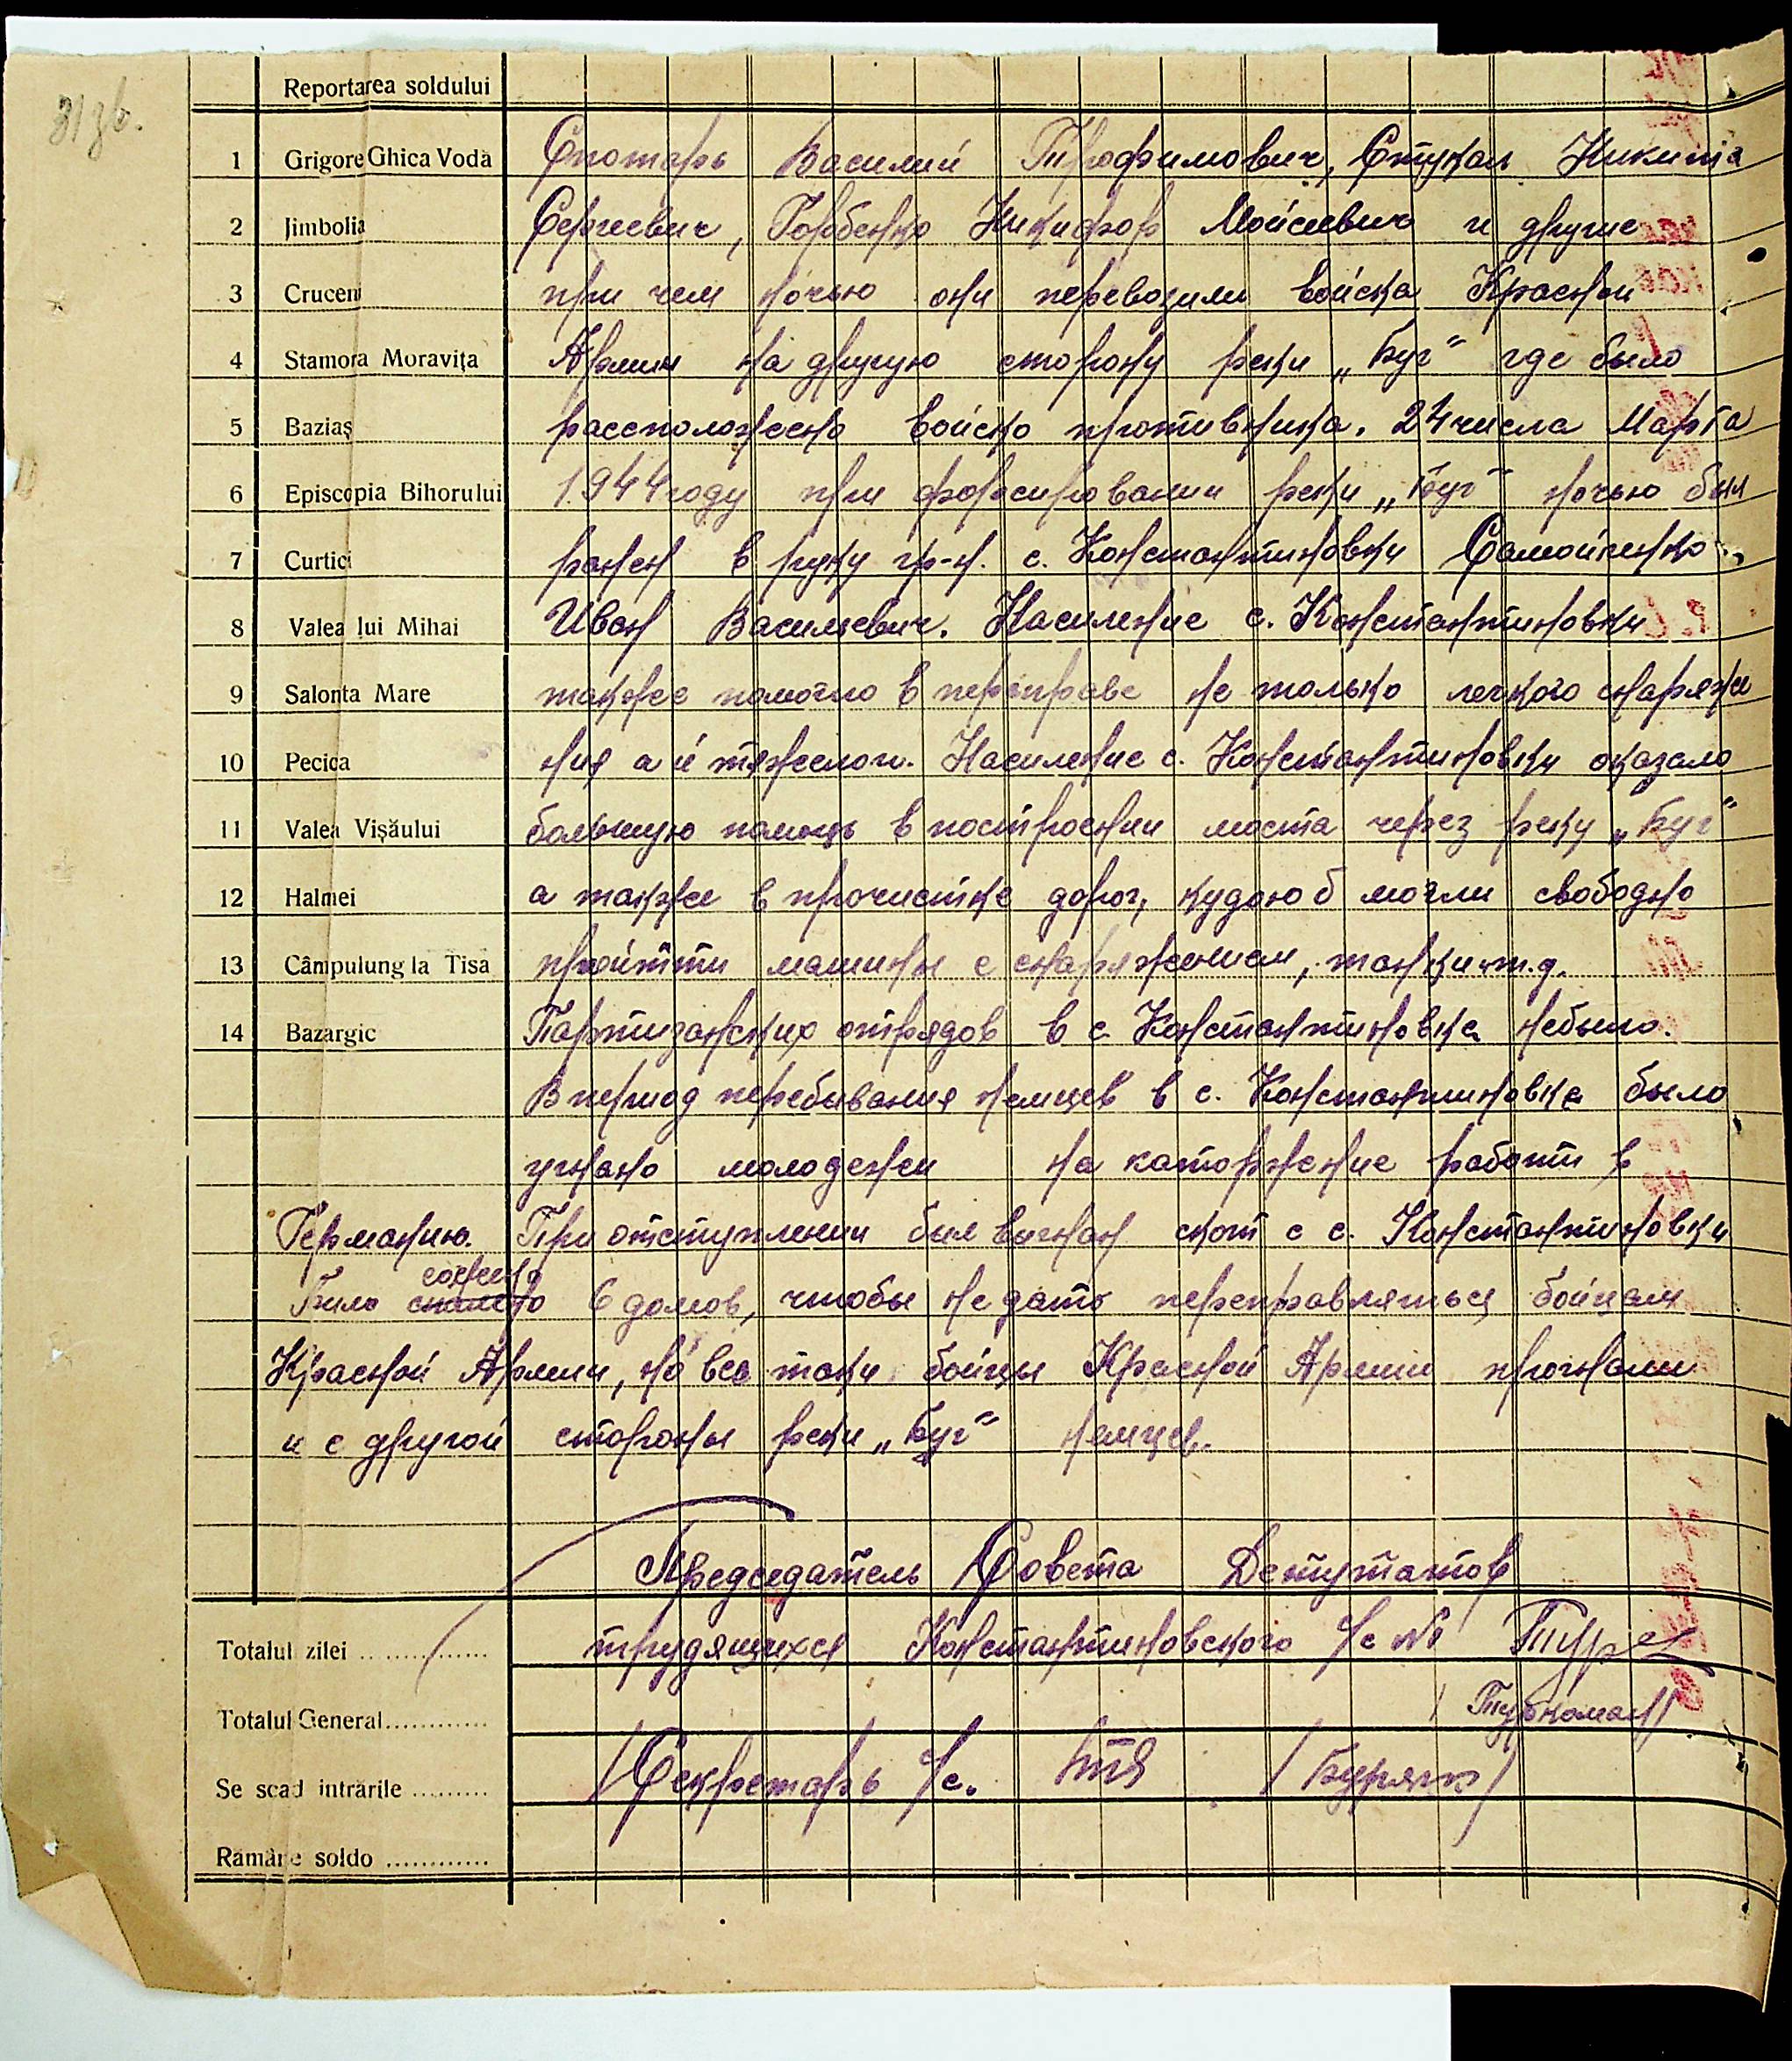 31 зв.
Reportarea soldului
1 Grigore Ghica Vodă Спотарь Василий Трофимович, Стукал Никита
2 Jimbolia Сергеевич, Горбенко Никифор Мойсеевич и другие
3 Cruceni при чем ночью они перевозили войска Красной
4 Stamora Moravița Армии на другую сторону реки „Буг“ где было
5 Baziaș рассположено войско противника. 24 числа Марта
6 Episcopia Bihorului 1944 году при форсировании реки „Буг“ ночью был
7 Curtici ранен в руку гр-н. с. Константиновки Самойленко
8 Valea lui Mihai Иван Васильевич. Насиление с. Константиновки
9 Salonta Mare также помогло в переправе не только легкого снаряже
10 Pecica ния а и тяжелого. Насиление с. Константиновки оказало
11 Valea Vișăului большую помощь в построении моста через реку „Буг“
12 Halmei а также в прочистке дорог, кудою б могли свободно
13 Câmpulung la Tisa пройтти машины с снаряжением, танки и т.д.
14 Bazargic Партизанских отрядов в с. Константиновка небыло.
В период перебывания немцев в с. Константиновка было
угнано молодежи на каторжение работи в
Германию. При отступлении был выгнан скот с с. Константиновки
сожено
Било спалено 6 домов, чтобы не дать переправляться бойцам
Красной Армии, но все таки бойцы Красной Армии прогнали
и с другой стороны реки „Буг“ немцев.
Председатель Совета Депутатов
Totalul zilei трудящихся Константиновского с/с №1 Тур
Totalul General /Туркоман/
Se scad intrările /Секретарь с/с. /Буряк/
Rămâne soldo